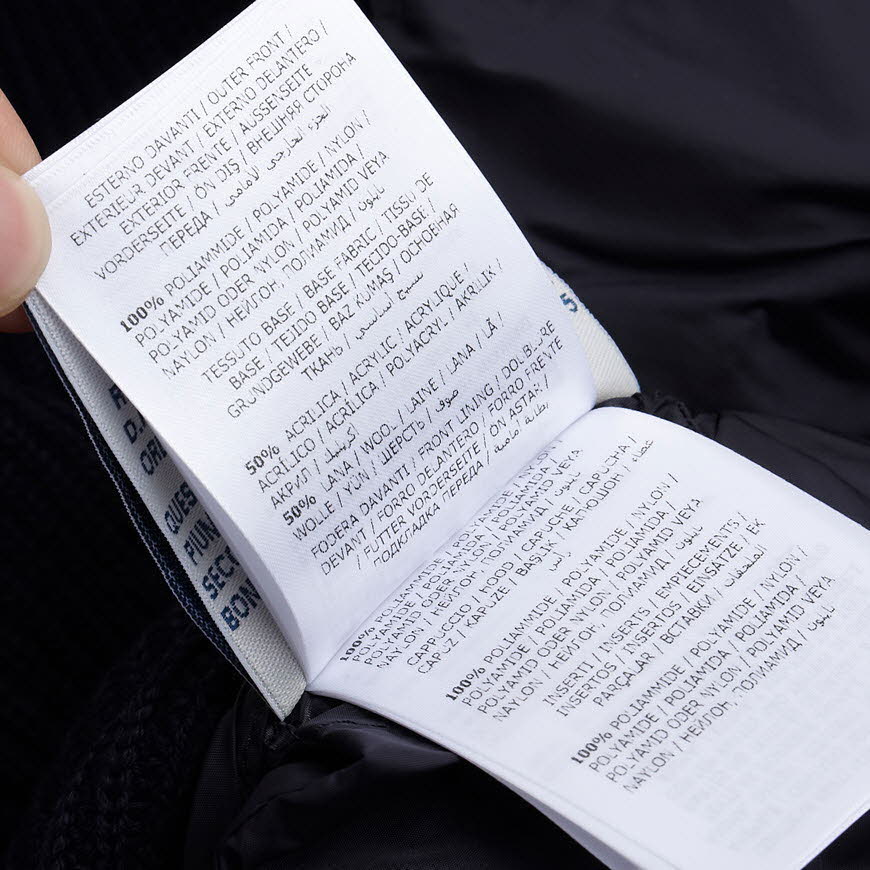 ESTERNO DAVANTI / OUTER FRONT /
EXTERIEUR DEVANT / EXTERNO DELANTERO /
EXTERIOR FRENTE / AUSSENSEITE
VORDERSEITE / ÖN DIŞ / ВНЕШНЯЯ СТОРОНА
ПЕРЕДА / الجزء الخارجي الأمامي
100% POLIAMMIDE / POLYAMIDE / NYLON /
POLYAMIDE / POLIAMIDA / POLIAMIDA /
POLYAMID ODER NYLON / POLYAMID VEYA
NAYLON / НЕЙЛОН, ПОЛИАМИД / نايلون
TESSUTO BASE / BASE FABRIC / TISSU DE
BASE / TEJIDO BASE / TECIDO-BASE /
GRUNDGEWEBE / BAZ KUMAŞ / ОСНОВНАЯ
ТКАНЬ / نسيج أساسي
50% ACRILICA / ACRYLIC / ACRYLIQUE /
ACRÍLICO / ACRÍLICA / POLYACRYL / AKRİLİK /
АКРИЛ / أكريليك
50% LANA / WOOL / LAINE / LANA / LÃ /
WOLLE / YÜN / ШЕРСТЬ / صوف
FODERA DAVANTI / FRONT LINING / DOUBLURE
DEVANT / FORRO DELANTERO / FORRO FRENTE
/ FUTTER VORDERSEITE / ÖN ASTAR /
ПОДКЛАДКА ПЕРЕДА / بطانة أمامية
100% POLIAMMIDE / POLYAMIDE / NYLON /
POLYAMIDE / POLIAMIDA / POLIAMIDA /
POLYAMID ODER NYLON / POLYAMID VEYA
NAYLON / НЕЙЛОН, ПОЛИАМИД / نايلون
CAPPUCCIO / HOOD / CAPUCHE / CAPUCHA /
CAPUZ / KAPUZE / BAŞLIK / КАПЮШОН / غطاء
رأس
100% POLIAMMIDE / POLYAMIDE / NYLON /
POLYAMIDE / POLIAMIDA / POLIAMIDA /
POLYAMID ODER NYLON / POLYAMID VEYA
NAYLON / НЕЙЛОН, ПОЛИАМИД / نايلون
INSERTI / INSERTS / EMPIECEMENTS /
INSERTOS / INSERTOS / EINSÄTZE / EK
PARÇALAR / ВСТАВКИ / الملحقات
100% POLIAMMIDE / POLYAMIDE / NYLON /
POLYAMIDE / POLIAMIDA / POLIAMIDA /
POLYAMID ODER NYLON / POLYAMID VEYA
NAYLON / НЕЙЛОН, ПОЛИАМИД / نايلون
QUES
PIUM
SECO
BON
5